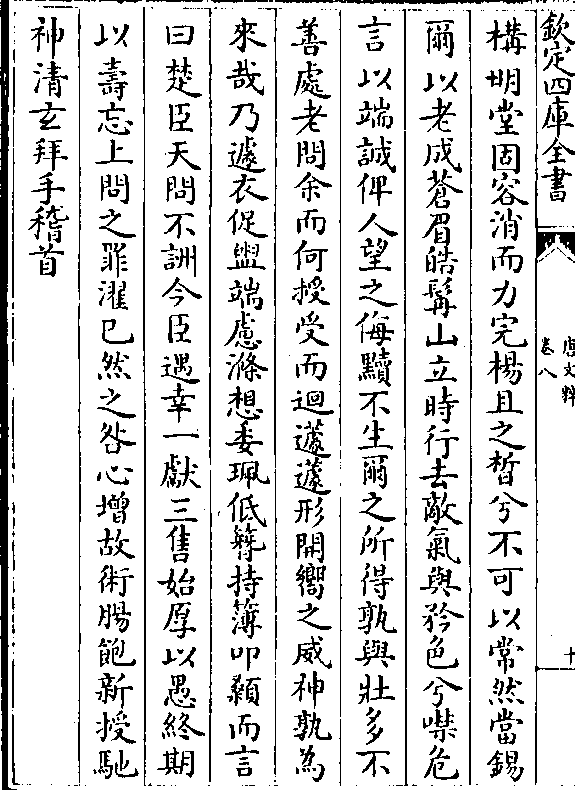 欽定四庫全書
唐文粹
卷八
十
構明堂固容消而力完楊且之晳兮不可以常然當錫
爾以老成蒼眉皓髯山立時行去敵氣與矜色兮噤危
言以端誠俾人望之侮黷不生爾之所得孰與壯多不
善處老問余而何授受而迴遽遽形開嚮之威神孰為
來哉乃遽衣促盥端慮滌想委珮低簪持簿叩顙而言
曰楚臣天問不詶今臣遇幸一獻三售始厚以愚終期
以壽忘上問之罪濯已然之咎心增故術腸飽新授馳
神清玄拜手稽首